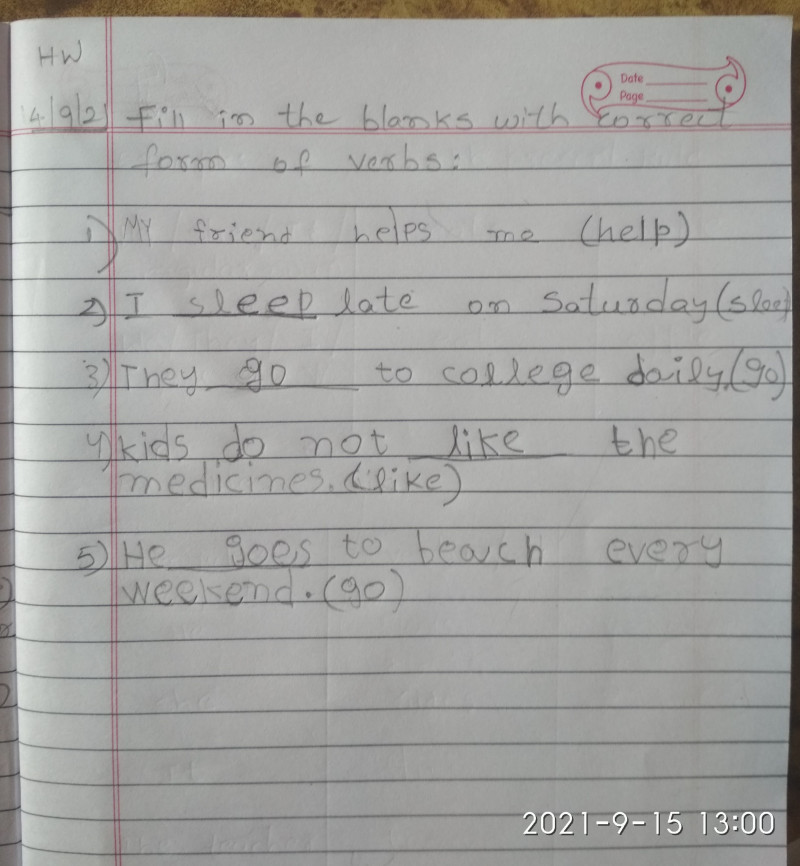 HW
Date
Page
14/9/21 Fill in the blanks with correct
form of verbs:
1) My friend helps me (help)
2) I sleep late on Saturday (sleep)
3) They go to college daily. (go)
4) kids do not like the
medicines. (like)
5) He goes to beach every
weekend. (go)
2021-9-15 13:00